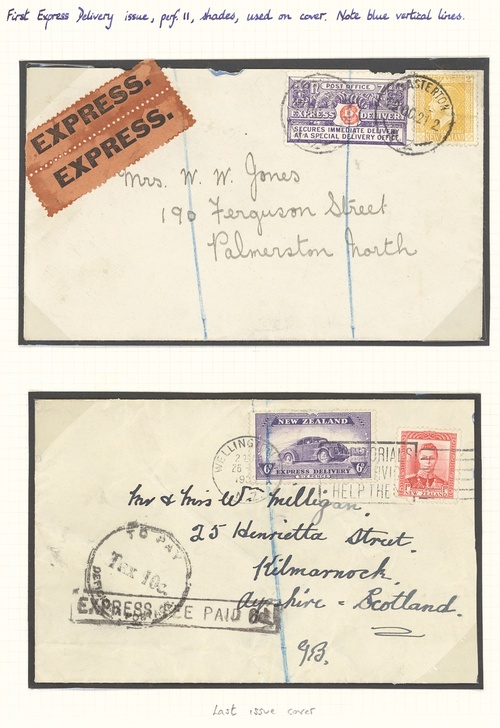 First Express Delivery issue, perf. 11, shades, used on cover. Note blue vertical lines.
EXPRESS.
EXPRESS.
POST OFFICE
EXPRESS DELIVERY
SECURES IMMEDIATE DELIVERY
AT A SPECIAL DELIVERY OFFICE
MASTERTON
Mrs. W. W. Jones
190 Ferguson Street
Palmerston North
NEW ZEALAND
6d 6d
EXPRESS DELIVERY
WELLING
HELP THE
NEW ZEALAND
Mr & Mrs Wm Milligan.
25 Henrietta Street.
Kilmarnock.
Ayrshire - Scotland.
G.B.
TO PAY
Tax 10c.
EXPRESS FEE PAID 6d.
Last issue cover